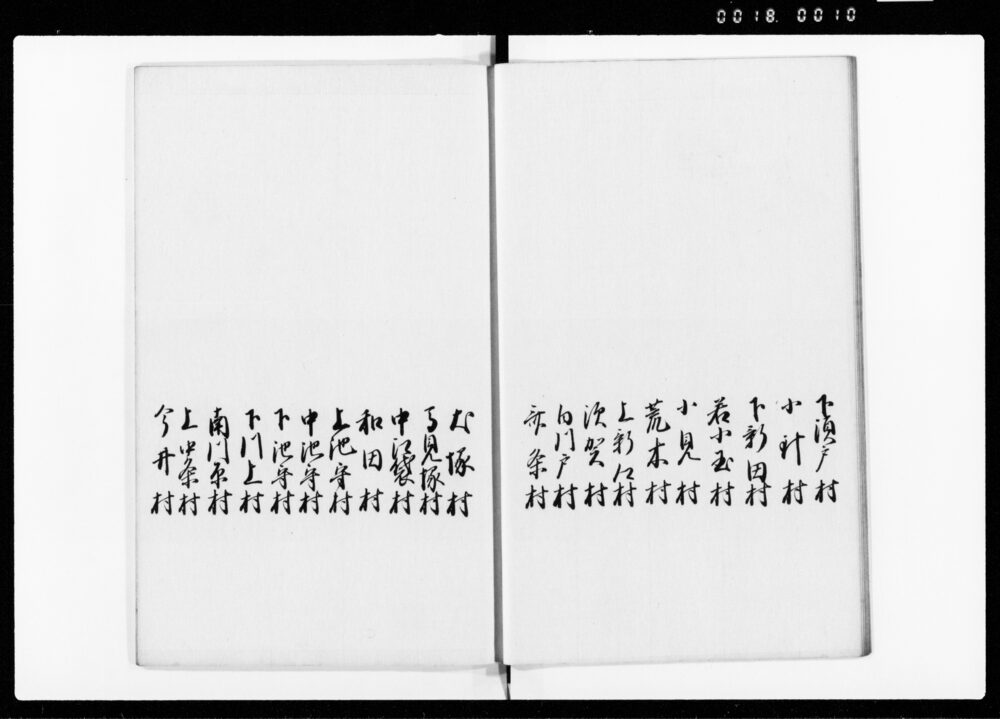 0018 0010
下須戸村
小針村
下新田村
若小玉村
小見村
荒木村
須賀村
白川戸村
斎条村
犬塚村
馬見塚村
中江袋村
和田村
上池守村
中池守村
下池守村
下川上村
南川原村
上中条村
今井村